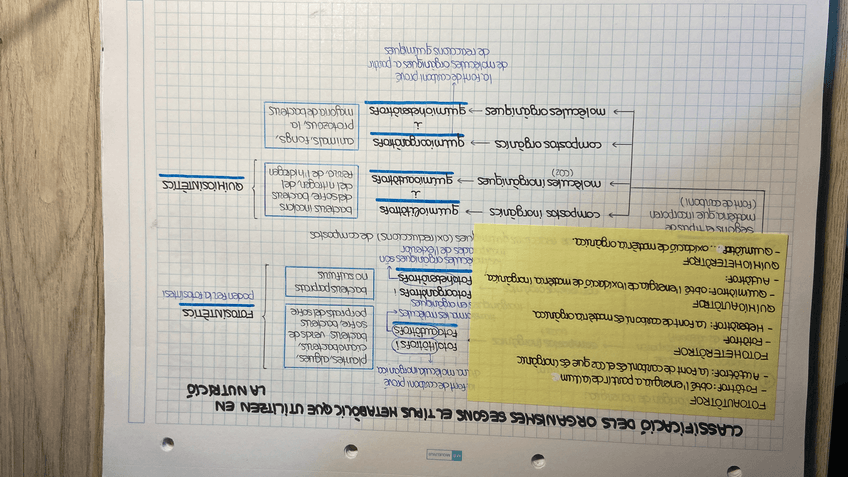 CLASSIFICACIÓ DELS ORGANISMES SEGONS EL TIPUS METABÒLIC QUE UTILITZEN EN
LA NUTRICIÓ
FOTOAUTÒTROF
- Fotòtrof: obté l'energia a partir de la llum
- Autòtrof: La font de carboni és el CO2 que és inorgànic
FOTOHETERÒTROF
- Fotòtrof
- Heteròtrof: La font de carboni és matèria orgànica.
QUIMIOAUTÒTROF
- Quimiòtrof: obté l'energia de la oxidació de matèria inorgànica.
- Autòtrof.
QUIMIOHETERÒTROF
- oxidació de matèria orgànica.
font de carboni prové
una molècula inorgànica
fotolitòtrofs i
fotoautòtrofs
plantes, algues,
cianobacteris,
bacteris verds de
sofre i bacteris
porprats del sofre
FOTOSINTÈTICS
poden fer la fotosíntesi
molècules
orgàniques
fotoorganòtrofs i
fotoheteròtrofs
bacteris porprats
no sulfuris
molècules orgàniques són
de l'exterior
(oxireduccions) de compostos
segons el tipus de
matèria que incorporen
(font de carboni)
compostos inorgànics → quimiolitòtrofs
i
molècules inorgàniques → quimioautòtrofs
(CO2)
bacteris incolors
del sofre, bacteris
del nitrogen, del
ferro i de l'hidrogen
QUIMIOSINTÈTICS
compostos orgànics → quimioorganòtrofs
i
molècules orgàniques → quimioheteròtrofs
animals, fongs,
protozous i la
majoria de bacteris
la font de carboni prové
de molècules orgàniques a partir
de reaccions químiques